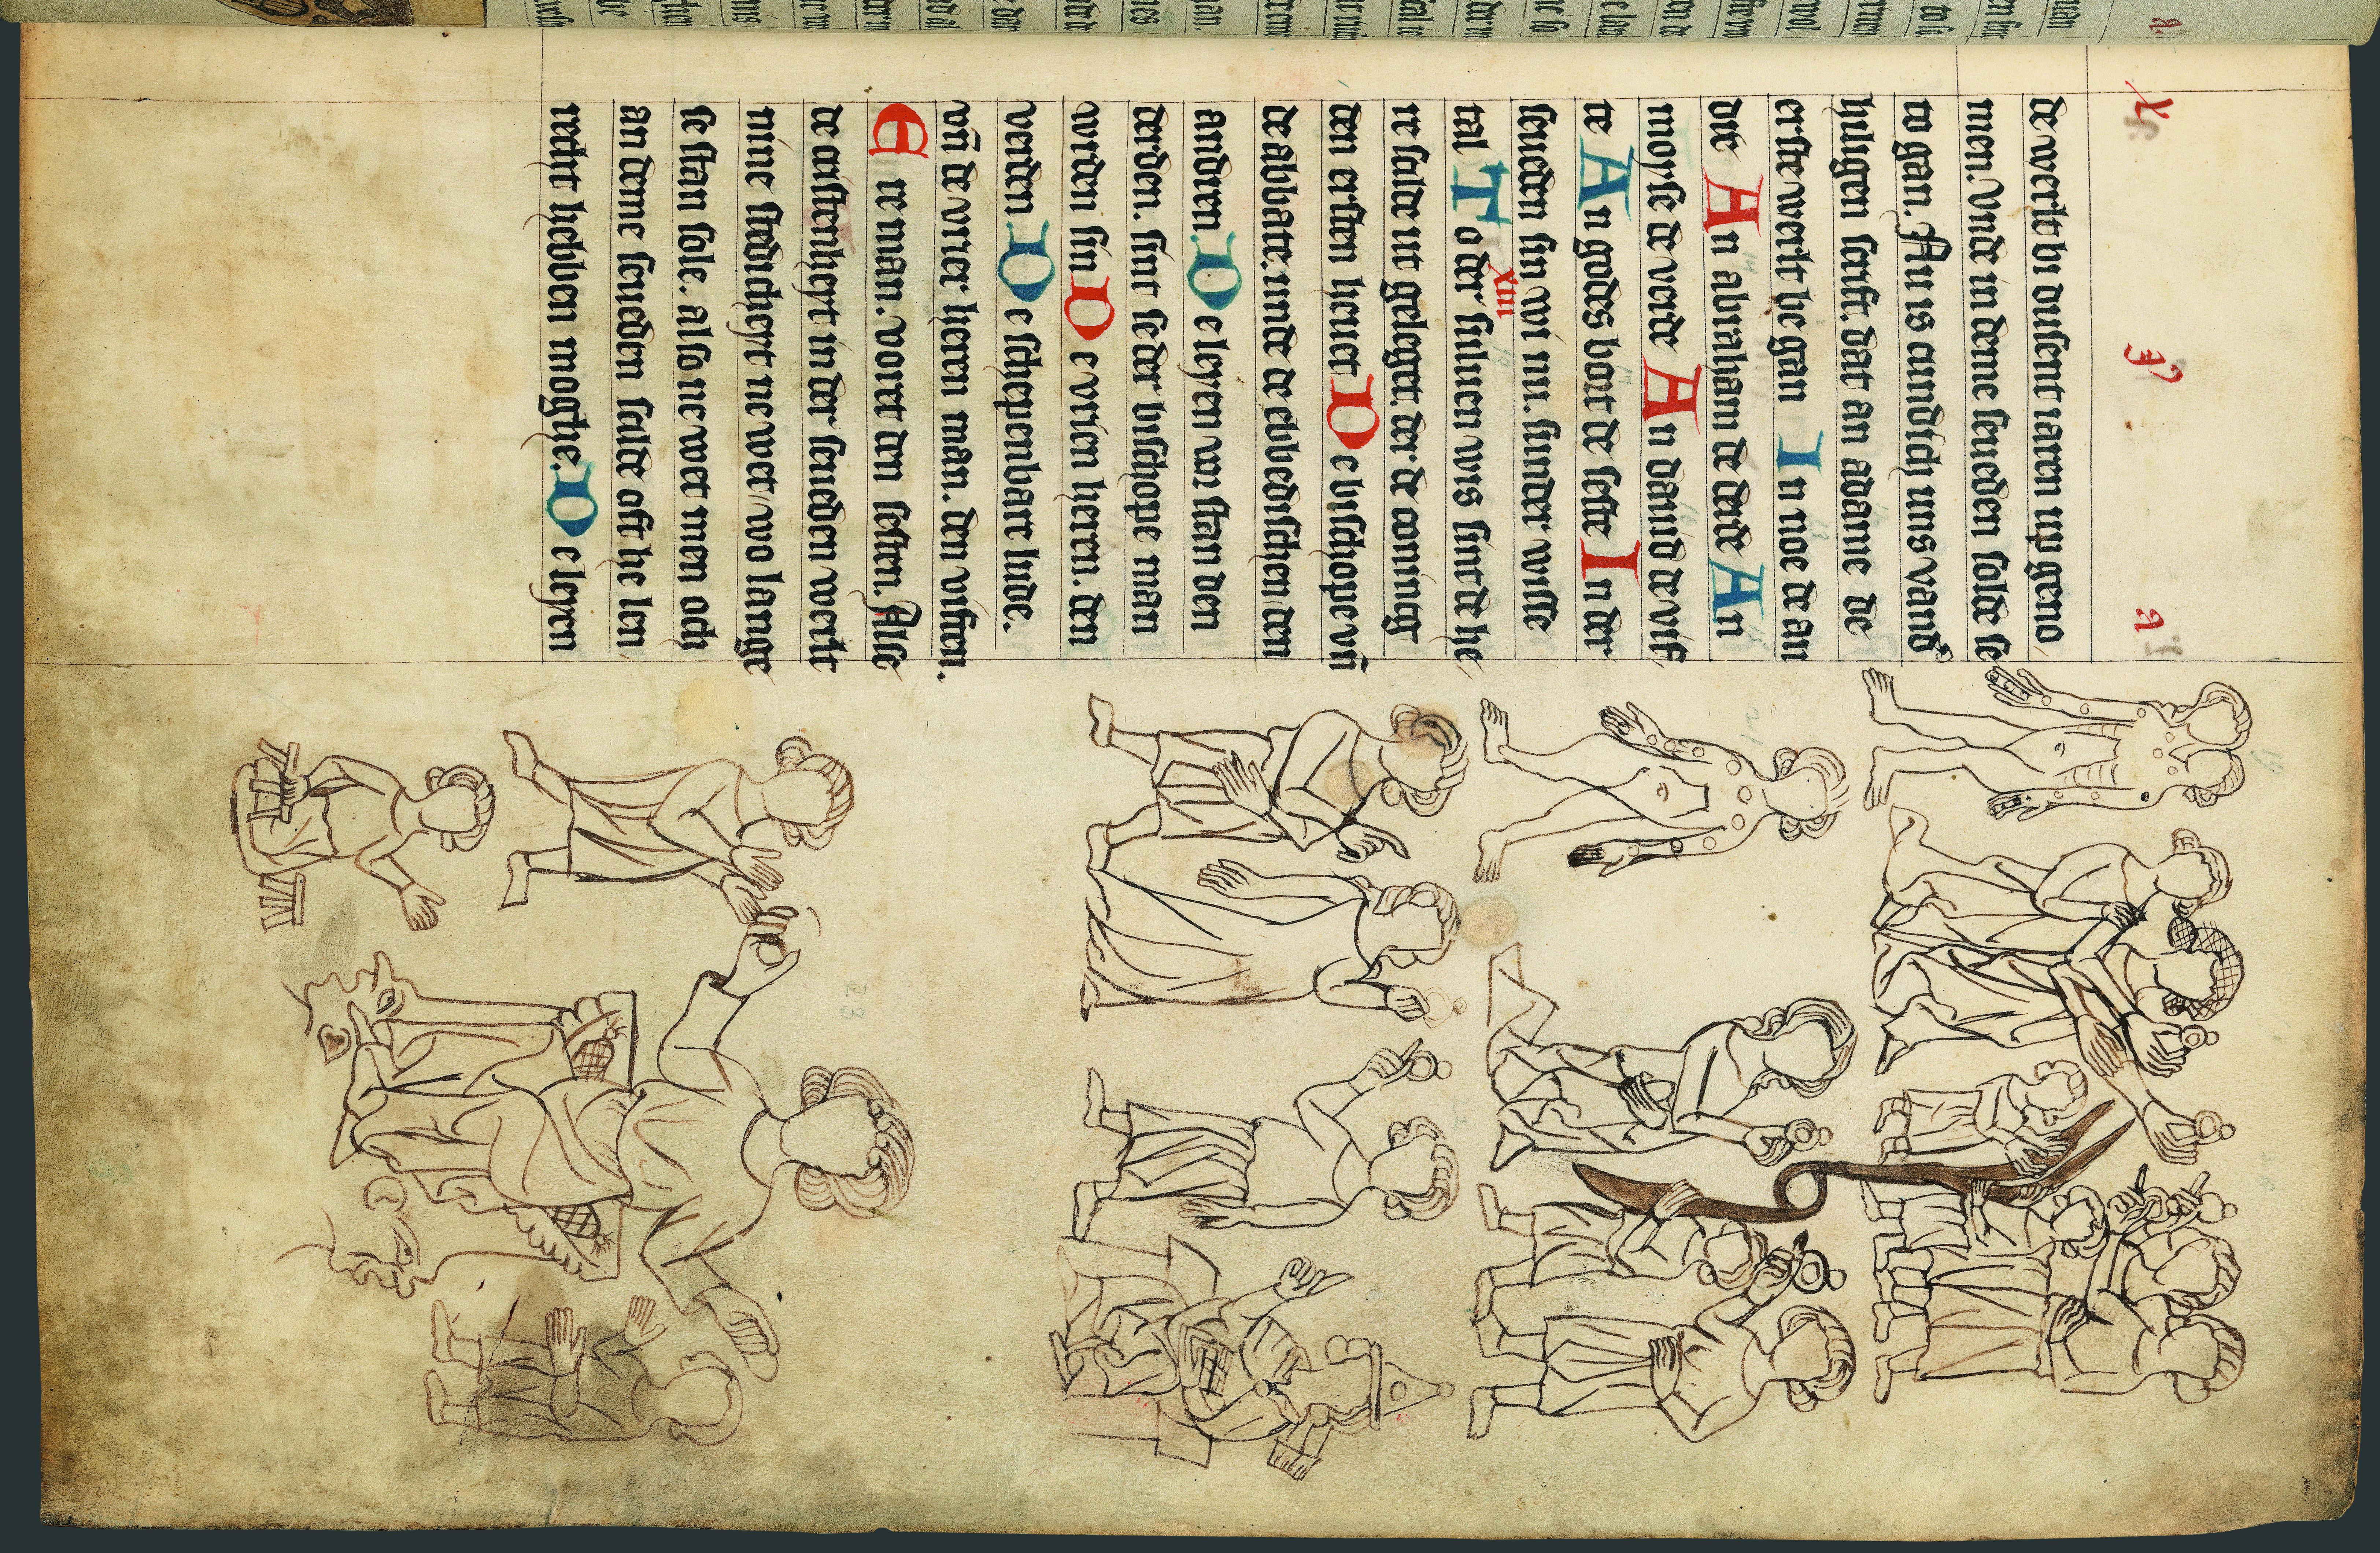 de werlt bi dusent iaren up geno
men. Vnde in deme seueden solde se
to gan. Nu is cundich uns vand
hiligen scrift. dat an adame de
erste werlt be gan In noe de an
der An abraham de derde An
moyse de verde An dauid de vif
te An godes bort de seste In der
seueden sin wi nu. sunder wisse
xiii
tal To der siluen wis sint de he
re scilde ut geleget. der de coning
den ersten heuet De bischope vn̄
de abbate. unde de ebbedischen den
anderen. De leyen van stan den
derden. sint se der bischope man
worden sin De vrien heren. den
verden De schepenbare lude.
vn̄ de vrier heren man. den viften.
E re man. vortet den sesten. Alse
de cristenheyt in der seueden werlt
nine stedicheyt ne wet wo lange
se stan sole. also ne wet men och
an deme seueden scilde oft he len
recht hebben moghe. De leyen